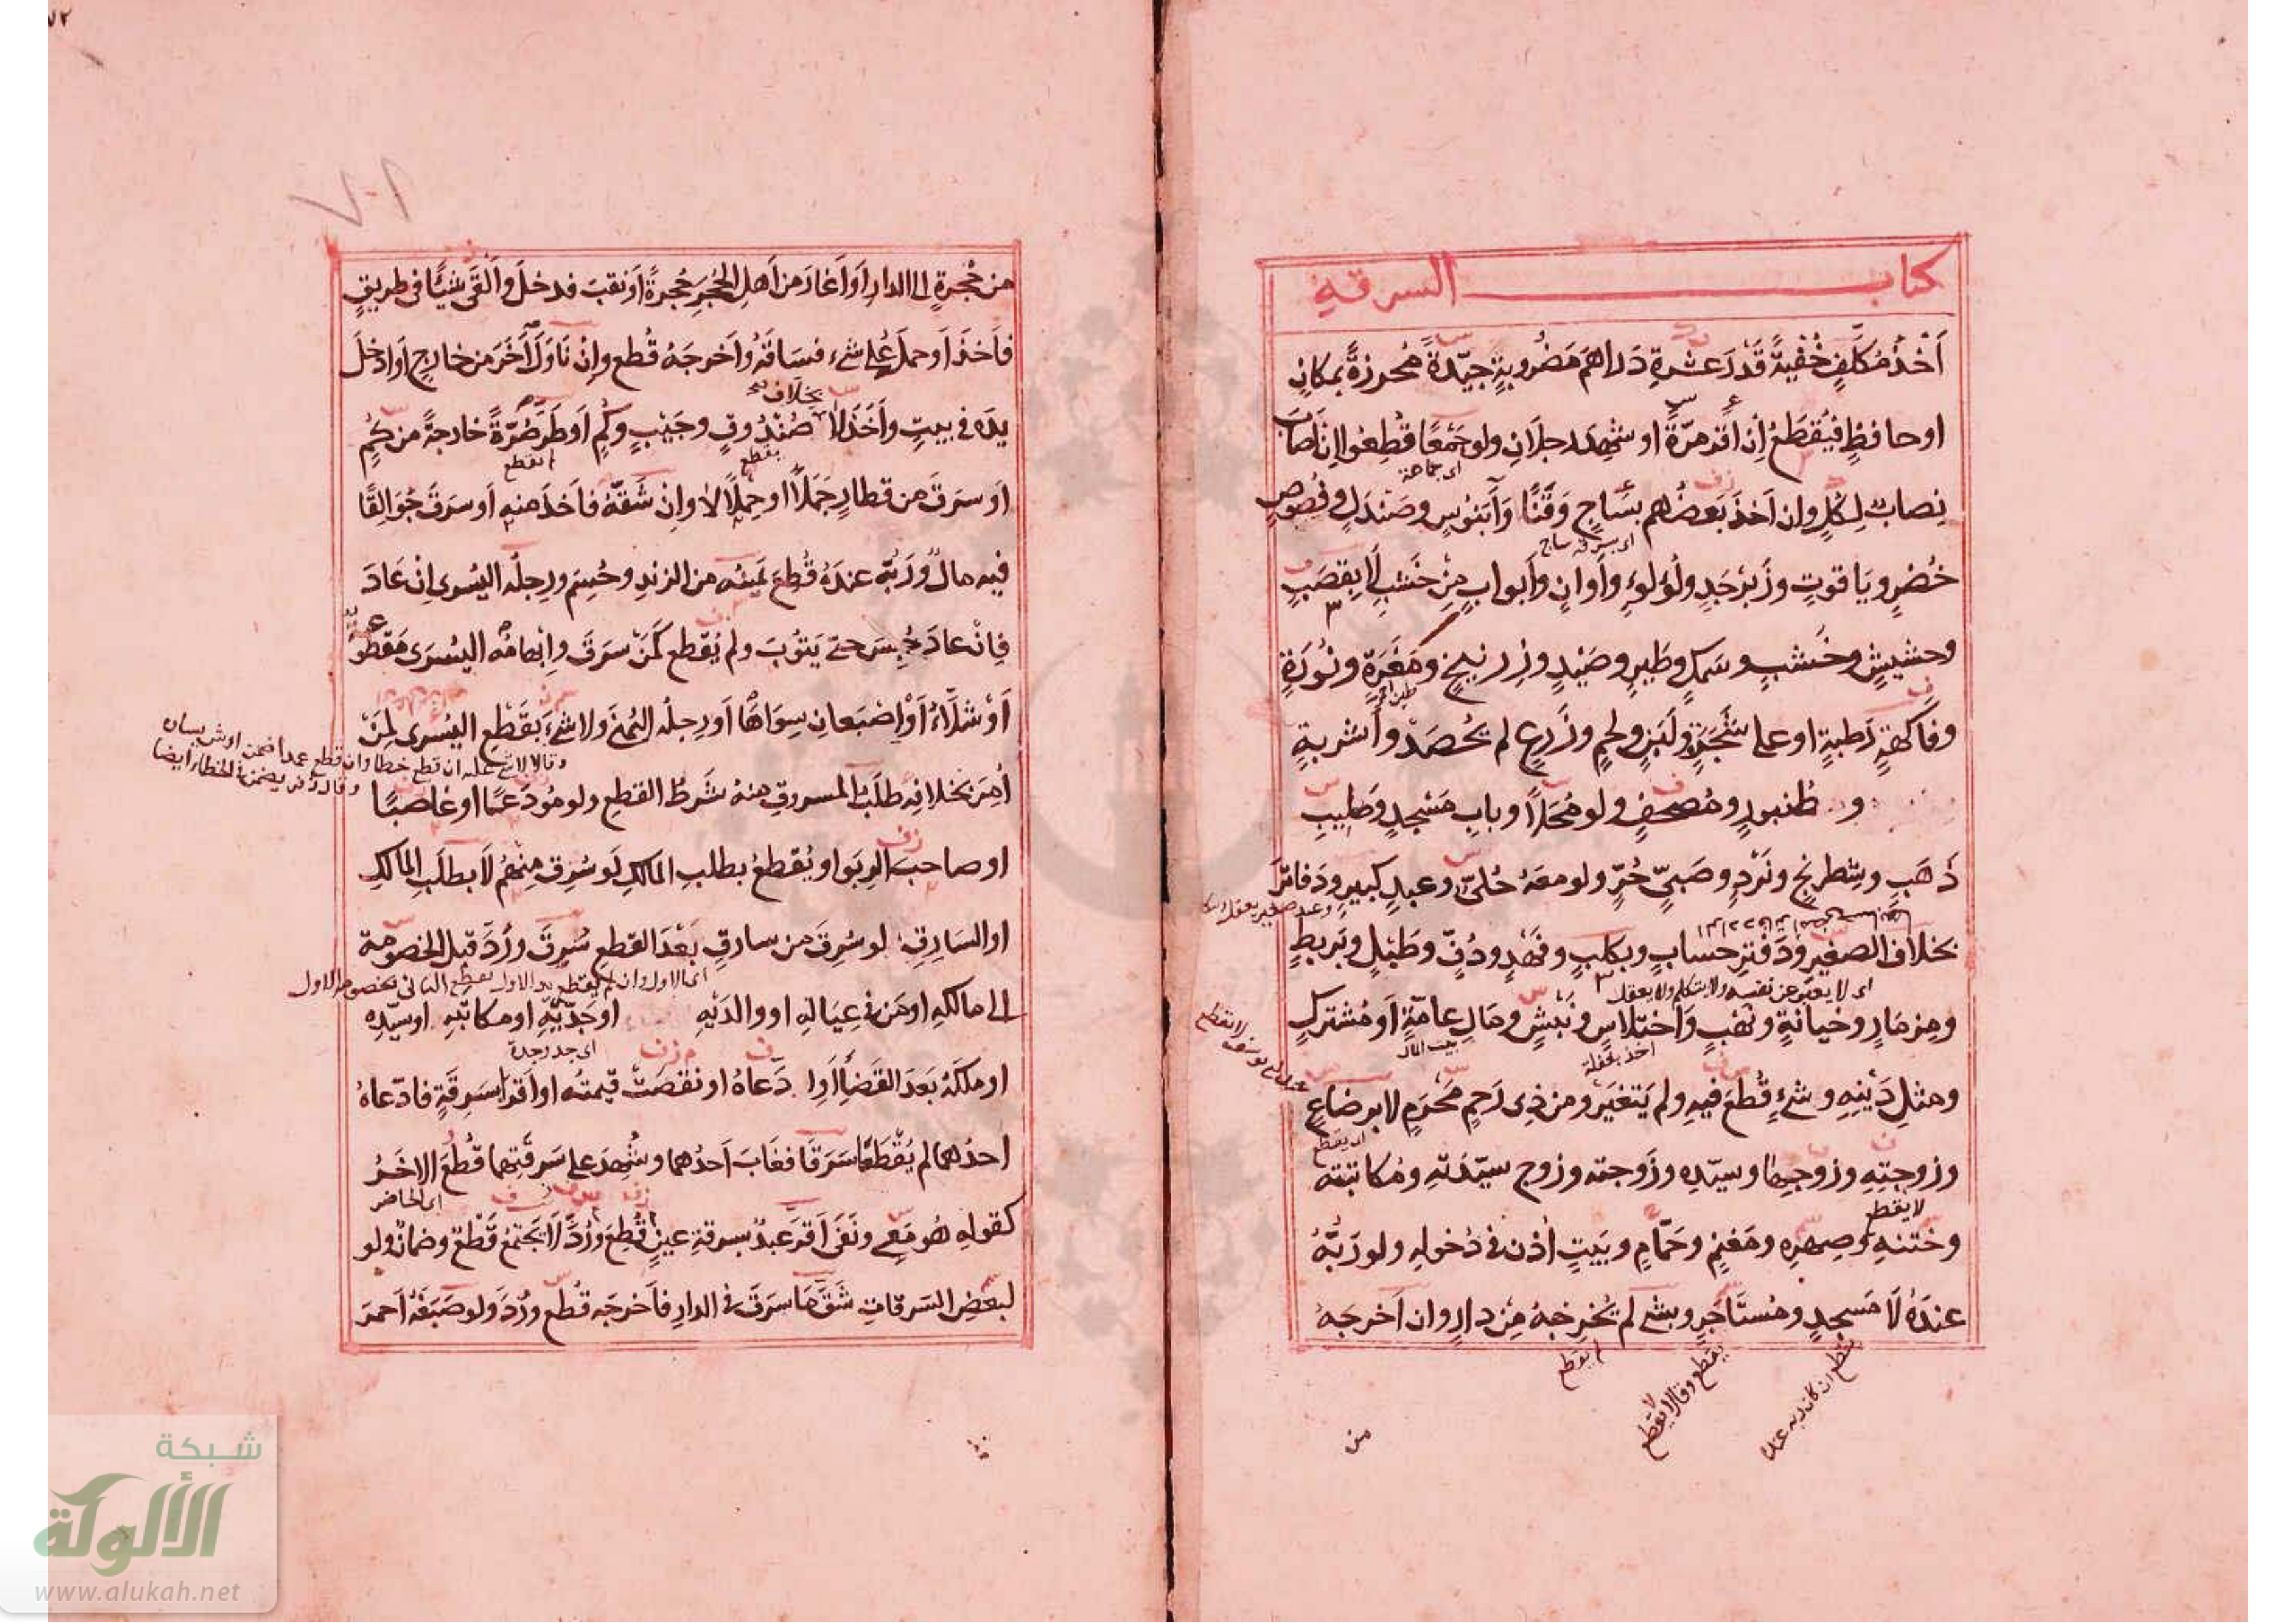 كتاب السرقة
أَخْذُ مُكَلَّفٍ خُفْيَةً قَدْرَ عشرةِ دَراهمَ مَضْرُوبةٍ جيّدةً مُحرزةً بمكانٍ
او حافظٍ فيُقطَعُ اِن اقرّ مرّةً او شهِدَ رجلانِ ولو جَمْعًا قُطِعُوا اِن اَصابَ
اى جماعة
نِصابٌ لِكلٍ وان اَخذَ بَعضُهم بسَاجٍ وَقَنًا وَآبَنُوسٍ وصَندَلٍ وفُصُوصٍ
اى بسرقة ساج
خُضْرٍ ويَاقوتٍ وزَبَرْجَدٍ ولُؤلوءٍ وأَوانٍ وأَبوابٍ مِنْ خَشبٍ لَا بِقصَبٍ
وحشيشٍ وخَشبٍ وسَمكٍ وطَيرٍ وصَيْدٍ وزِرنيخٍ ومَغْرَةٍ ونُورَةٍ
طين احمر
وفاكهةٍ رَطبةٍ او على شَجَرٍ ولَبَنٍ ولحمٍ وزَرعٍ لم يُحْصَدْ وأَشربةٍ
و طُنبورٍ ومُصحفٍ ولو مُحَلّاً وبابِ مَسْجدٍ وَصَلِيبِ
ذَهَبٍ وشِطرنجٍ ونَرْدٍ وصَبيٍّ حُرٍّ ولو معَهُ حُليٌّ وعبدٍ كبيرٍ ودَفاتِرَ
بخلاف الصغيرِ ودَفْترِ حسابٍ وبكلبٍ وفَهْدٍ ودُفٍّ وطَبْلٍ وبَربطٍ
اى لا يعبر عن نفسه ولا يتكلم ولا يعقل
ومِزمَارٍ وخيانةٍ ونَهْبٍ وَاختلاسٍ ونَبْشٍ ومَالِ عامّةٍ أو مُشتركٍ
اخذ بغفلة
بيت المال
ومثلِ دَيْنِهِ وشيءٍ قُطعَ فيهِ ولم يَتغيّر ومن ذِى رَحِمٍ مَحْرَمٍ لا برضاعٍ
اى يقطع
وزوجتِهِ وزوجِها وسيّدِه وزَوجته وزوج سيّدَتهِ ومُكاتبَتِه
لا يقطع
وخَتنهِ وصِهرِه ومَغنمٍ وحَمّامٍ وبَيتٍ أُذن فى دُخولهِ ولو رَبُّهُ
عندَهُ لَا مَسجدٍ ومُستَأجَرٍ وبشيءٍ لم يُخرجهُ مِنْ دارٍ وان اَخرجَهُ
يقطع ان كان ربه عنده
يقطع وقالا لا يقطع
لم يقطع
من
من حُجرةٍ الى الدارِ اَو اَغارَ من اَهلِ الحُجرِ حُجرةً اَو نقبَ فدخلَ واَلْقَى شيئًا فى طريقٍ
فاَخذَ اَو حملَ على شيءٍ فسَاقَهُ واَخرجَهُ قُطع وإنْ نَاوَلَ آخَرَ من خارجٍ اَو ادخلَ
بخلاف
يدَه فى بيتٍ واَخَذَ لا صُنْدُوقٍ وجَيْبٍ وكُمٍّ اَو طَرَّ صُرَّةً خارجةً من كُمٍّ
يقطع
لم يقطع
اَو سرَقَ من قطارٍ جَملًا او حِملًا لا وإنْ شَقَّهُ فاَخذَ منهِ اَو سرَقَ جُوَالِقًا
فيه مالٌ ورَبُّه عندَهُ قُطعَ يَمينُه من الزندِ وحُسِمَ ورِجلُه اليُسرى اِنْ عَادَ
فإنْ عادَ حُبِسَ حتّى يَتُوبَ ولم يُقطع كَمَنْ سرَقَ وابهامُه اليُسرَى مَقطُوعةٌ
أوْ شلّاءُ أوْ إصْبَعانِ سِوَاهَا اَو رِجلُه اليُمنَى ولا شيءَ بقَطْعِ اليُسرى لِمَنْ
وقالا لا شئ عليه ان قطع خطا وان قطع عمدا ضمن ارش يساره
وقال زفر يضمن فى الخطاء ايضا
اُمِرَ بخلافِه طَلَبُ المسروقِ منهُ شَرطُ القطعِ ولو مُودَعًا او غاصبًا
او صاحبَ الرِبَوا ويُقطعُ بطلبِ المالكِ لَو سُرِقَ مِنْهُم لَا بطلَبِ المالكِ
او السَارِقِ لو سُرِقَ من سارقٍ بَعْدَ القطعِ سُرِقَ ورُدَّ قبلَ الخصومةِ
الى مالكهِ او مَن فى عِيَالهِ او والدَيْهِ او جَدَّيْهِ او مكاتبهِ او سيّدِه
اى جد وجدة
او ملكَهُ بَعدَ القَضاءِ اَوِ ادَّعاهُ او نقصَتْ قيمتُه او اَقرّا بسَرِقةٍ فادّعاهُ
احدُهما لم يُقْطَعَا سَرَقَا فغَابَ اَحدُهما وشُهِدَ على سَرِقَتِهما قُطعَ الاخَرُ
اى الحاضر
كقولهِ هُو مَعِى ونَفَى اَقرَّ عَبدٌ بسرقةِ عينٍ قُطِعَ ورُدَّ لَا يَجتمعُ قَطعٌ وضمانٌ ولو
لبعضِ السَرقاتِ شَقَّ مَا سرَقَ فى الدارِ فاَخرجَه قُطع ورُدَّ ولو صَبَغَهُ اَحمرَ
شبكة
الألوكة
www.alukah.net